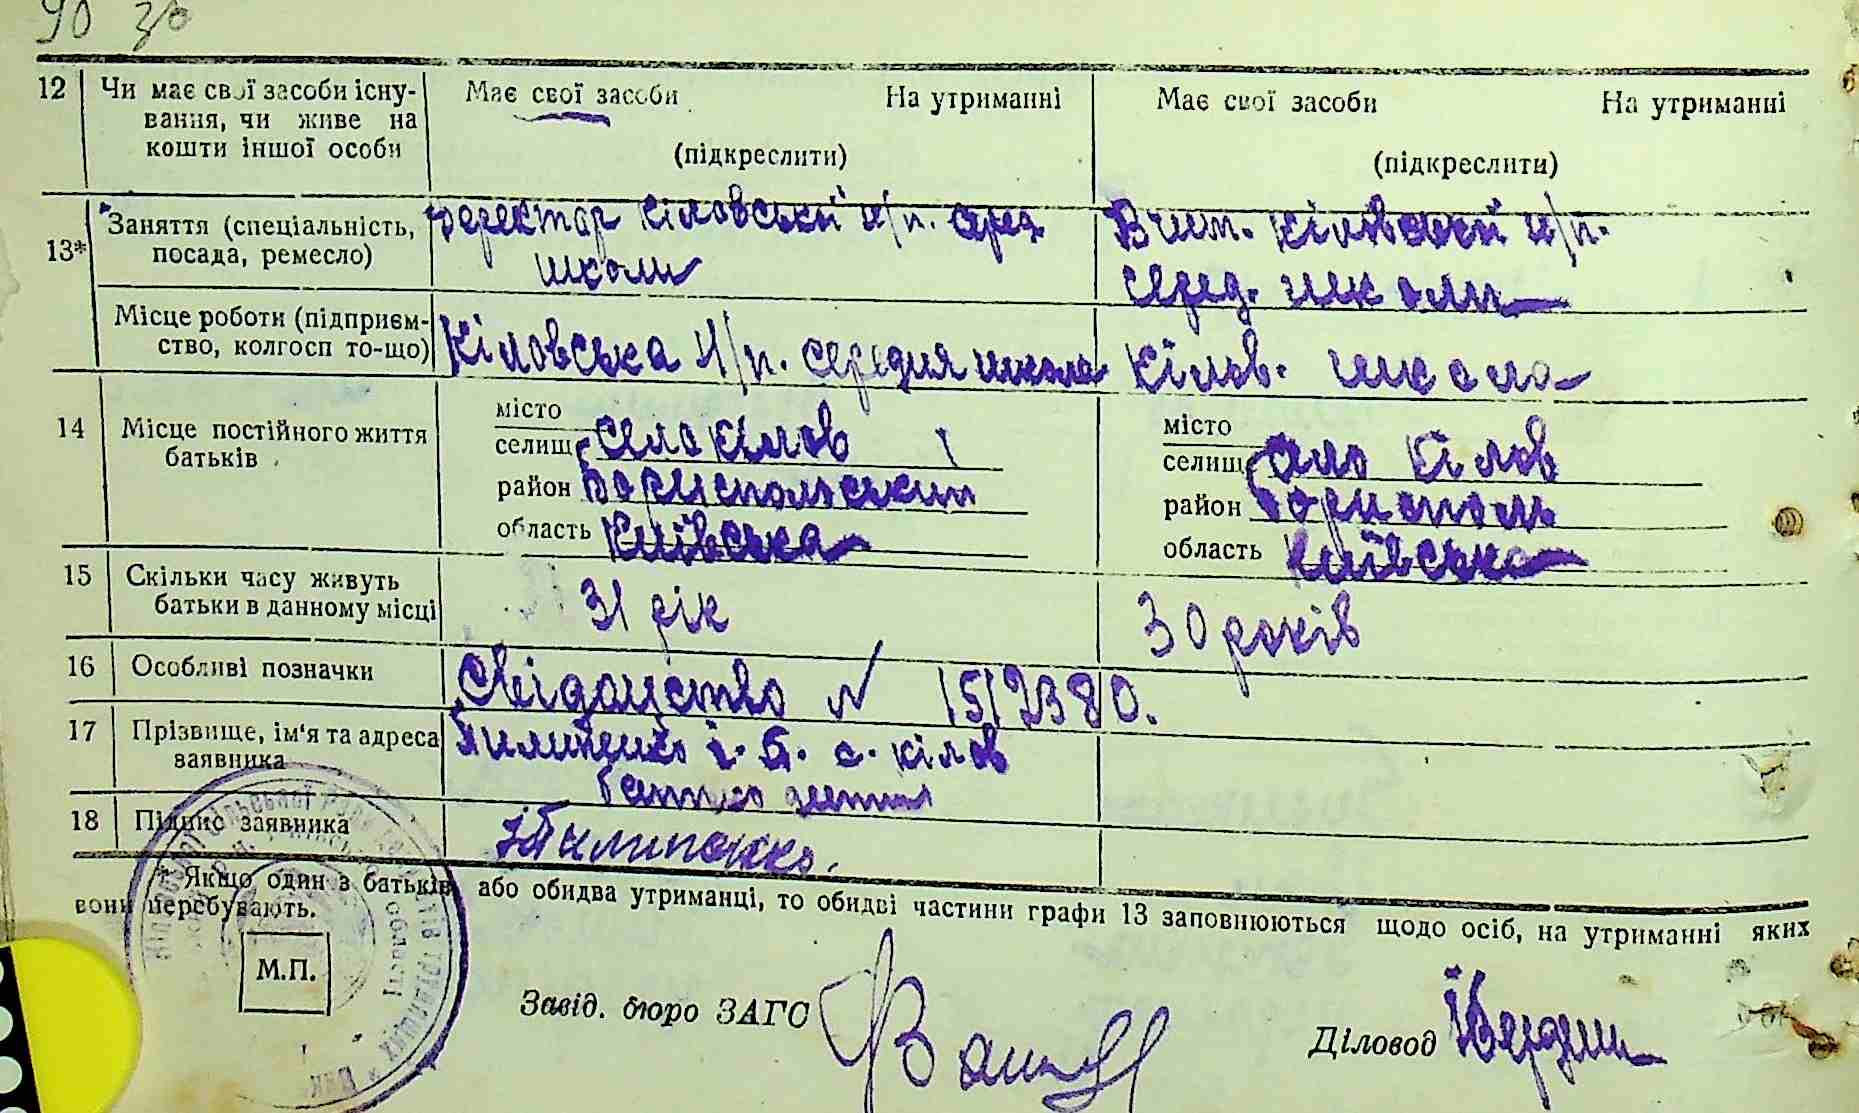 90 зв
12 Чи має свої засоби існу- Має свої засоби На утриманні Має свої засоби На утриманні
вання, чи живе на
кошти іншої особи (підкреслити) (підкреслити)
13* Заняття (спеціальність, Деректор Кіловської н/п. серед. Вчит. Кіловської н/п.
посада, ремесло) школи серед. школи
Місце роботи (підприєм- Кіловська н/п. середня школа Кілов. школа
ство, колгосп то-що)
14 Місце постійного життя місто місто
батьків селищ село Кілов селищ село Кілов
район Бориспольський район Бориспол
область Київська область Київська
15 Скільки часу живуть 31 рік 30 років
батьки в данному місці
16 Особливі позначки Свідоцтво № 1512380.
17 Прізвище, ім'я та адреса Пилипенко І. Б. с. Кілов
заявника батько дитини
18 Підпис заявника Пилипенко.
* Якщо один з батьків або обидва утриманці, то обидві частини графи 13 заповнюються щодо осіб, на утриманні яких
вони перебувають.
М.П.
Завід. бюро ЗАГС
Діловод